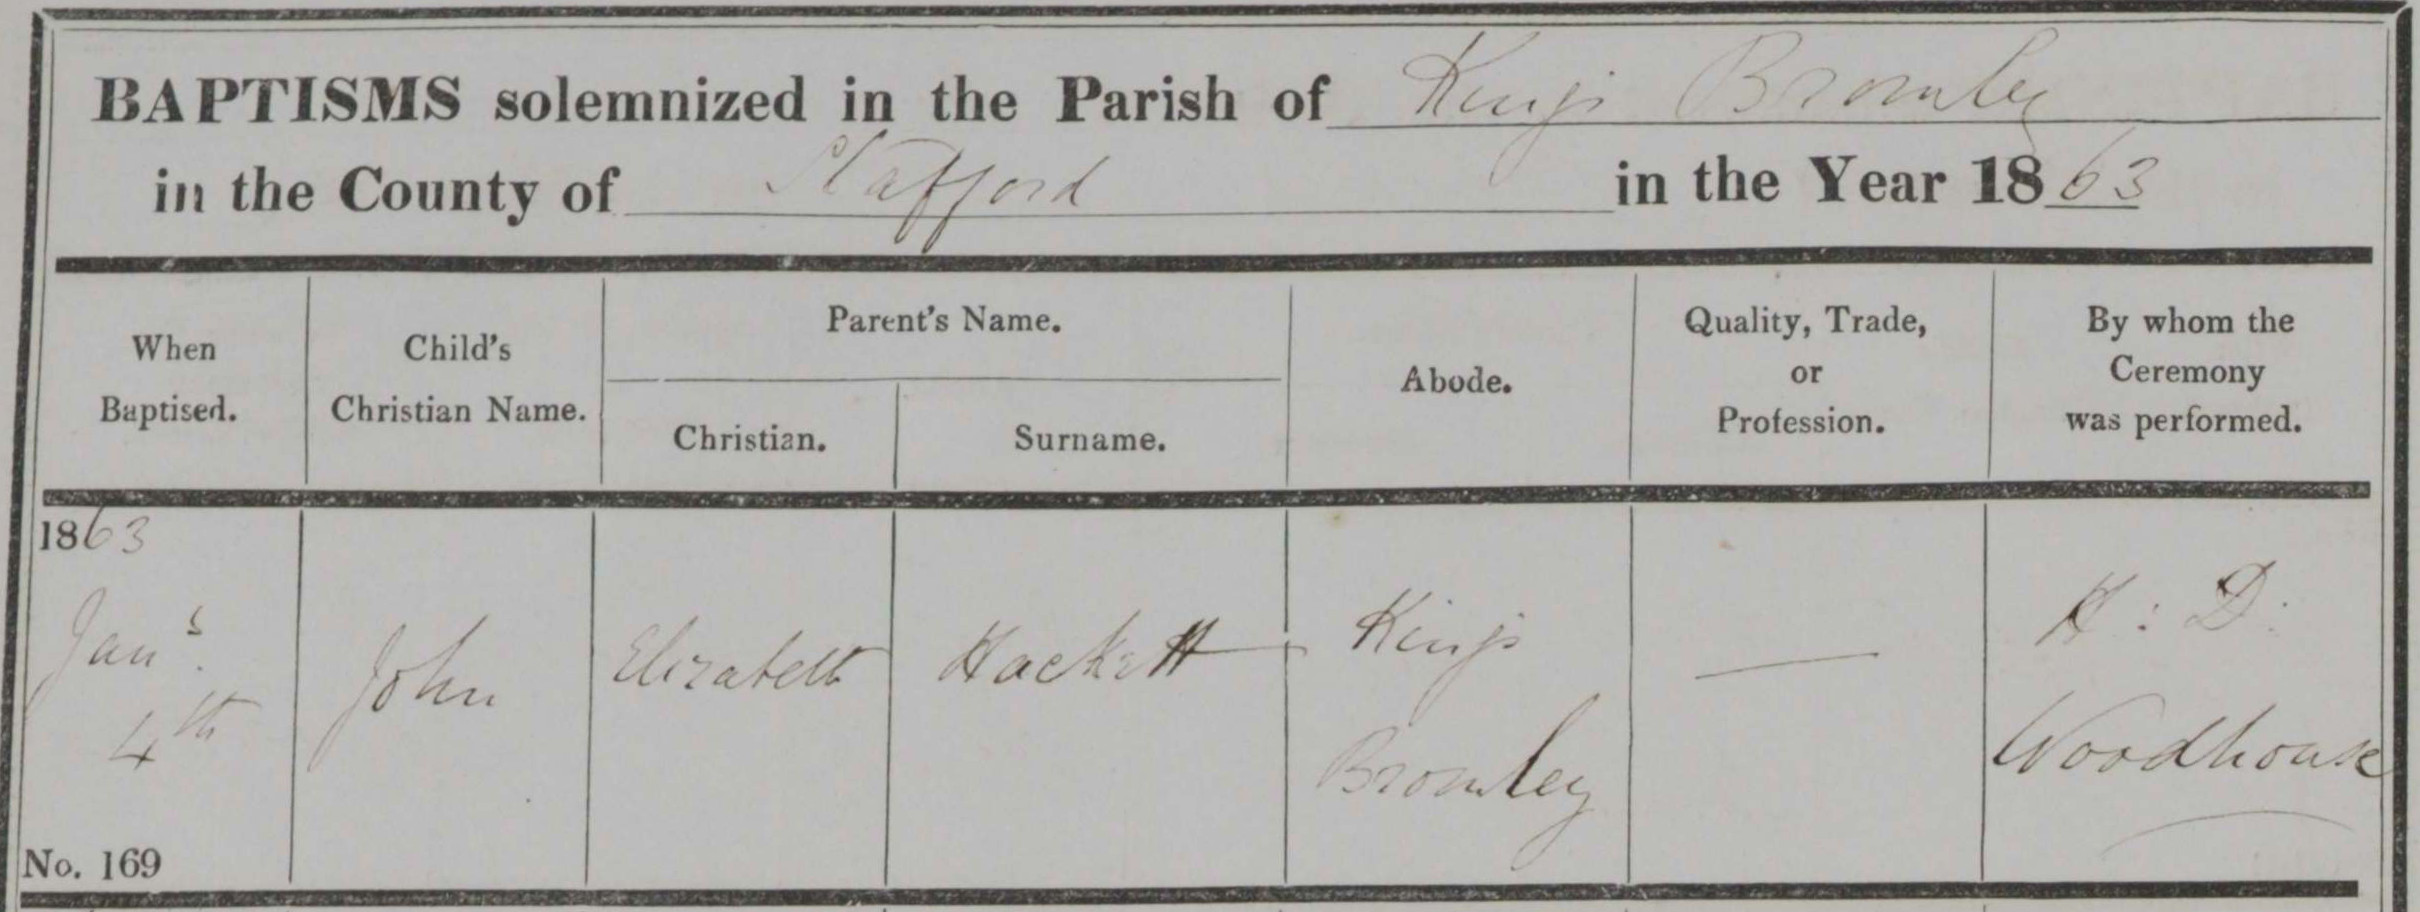 BAPTISMS solemnized in the Parish of Kings Bromley
in the County of Stafford in the Year 1863
When
Baptised.
Child's
Christian Name.
Parent's Name.
Christian.
Surname.
Abode.
Quality, Trade,
or
Profession.
By whom the
Ceremony
was performed.
1863
Jany.
4th
No. 169
John
Elizabeth
Hackett
Kings
Bromley
—
H: D:
Woodhouse